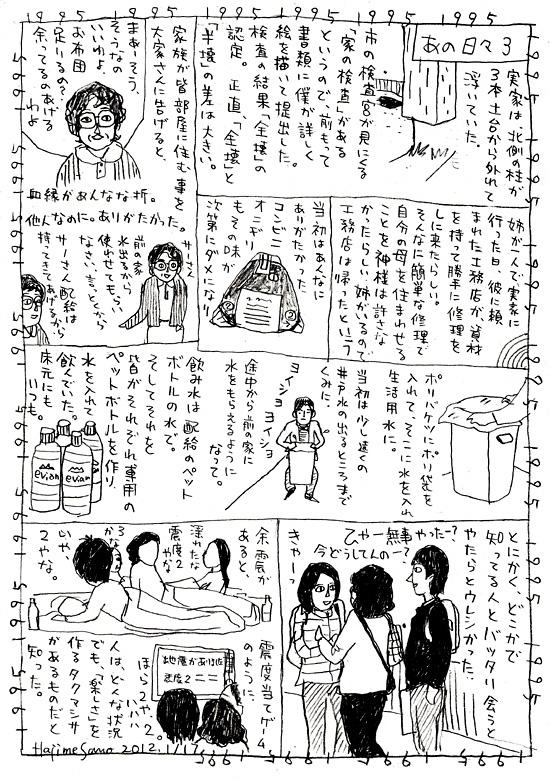 1995 1995 1995 1995 1995
あの日々 3
実家は北側の柱が
3本土台から外れて
浮いていた。
市の検査官が見にくる
「家の検査」がある
というので、前もって
書類に僕が詳しく
絵を描いて提出した。
検査の結果「全壊」の
認定。正直、「全壊」と
「半壊」の差は大きい。
家族が皆部屋に住む事を
大家さんに告げると、
まあーそう、
そうなの
いいわよ、
お布団
足りるの?
余ってるのあげる
わよ
血縁があんなな折。
他人なのに。ありがたかった。
姉が人で実家に
行った日、彼に頼
まれた工務店が、資材
を持って勝手に修理を
しに来たらしい。
そんなに簡単な修理で
自分の母を住まわせる
ことを神様は許さな
かったらしい。姉がいるので
工務店は帰ったという
当初はあんなに
ありがたかった、
コンビニ
オニギリ
もその味が
次第にダメになり
サーさん
前の家
水出るから
使わせてもらい
なさい、言っとくから
サーさん、配給は
持ってきてあげるから
ポリバケツにポリ袋を
入れて、そこに水を入れ
生活用水に。
当初は少し遠くの
井戸水の出るところまで
くみに、
ヨイショ
ヨイショ
途中から前の家に
水をもらえるように
なって。
飲み水は配給のペット
ボトルの水で。
そしてそれを
皆がそれぞれ専用の
ペットボトルを作り、
水を入れて
飲んでいた。
床元にも
いつも。
evian
evian
とにかく、どこかで
知ってる人とバッタリ会うと
やたらとウレシかった。
ひゃー無事やったー?
今どうしてんのー?
きゃーっ
余震が
あると、
揺れたな
震度2
やな
いや、
2やな。
震度当てゲーム
のように、
ほら2や、2。
ハハハ
人は、どんな状況
でも、「楽しさ」を
作るタクマシサ
があるものだと
知った。
震度2
Hajime Sano 2012.1/17